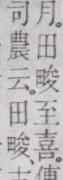 月。田畯至喜。
司農云。田畯、